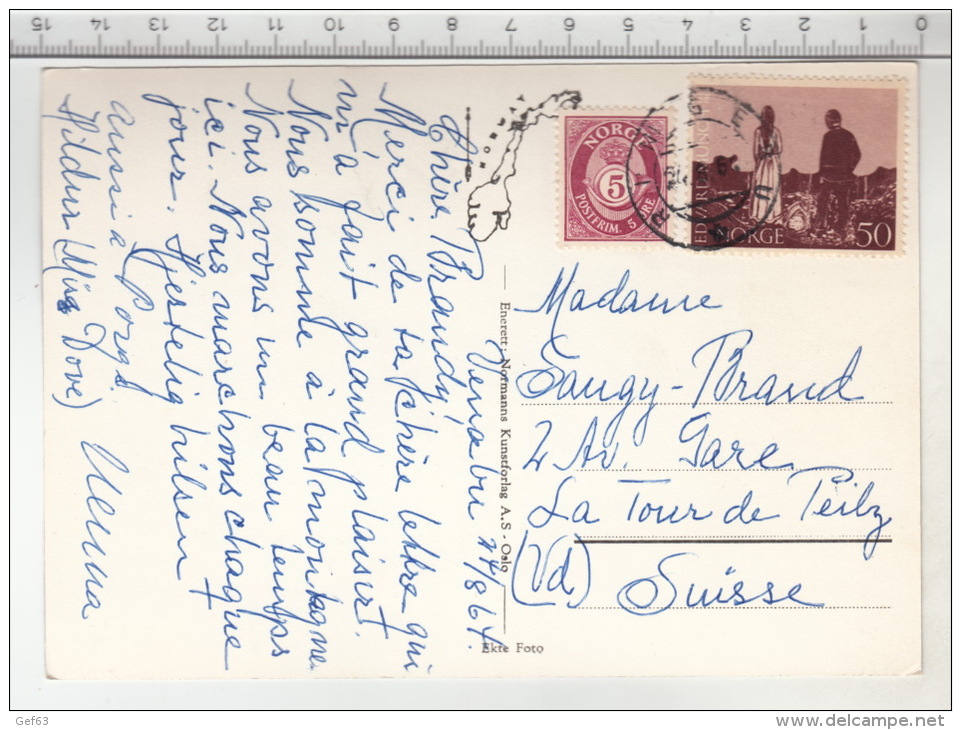 15 14 13 12 11 10 9 8 7 6 5 4 3 2 1 0
NORGE
5
POSTFRIM. 5 ØRE
NORGE 50
NORGE
Venabu 17/8 64.
Chère Brandy,
Merci de ta chère lettre qui
m'a fait grand plaisir.
Nous sommes à la montagne
Nous avons un beau temps
ici. Nous marchons chaque
jour. Hjertelig hilsen
aussi à
Hildur
Dove)
Enerett: Normanns Kunstforlag A.S - Oslo
Ekte Foto
Madame
Saugy-Brand
2 Av. Gare
La Tour de Peilz
(Vd) Suisse
Gef63
www.delcampe.net